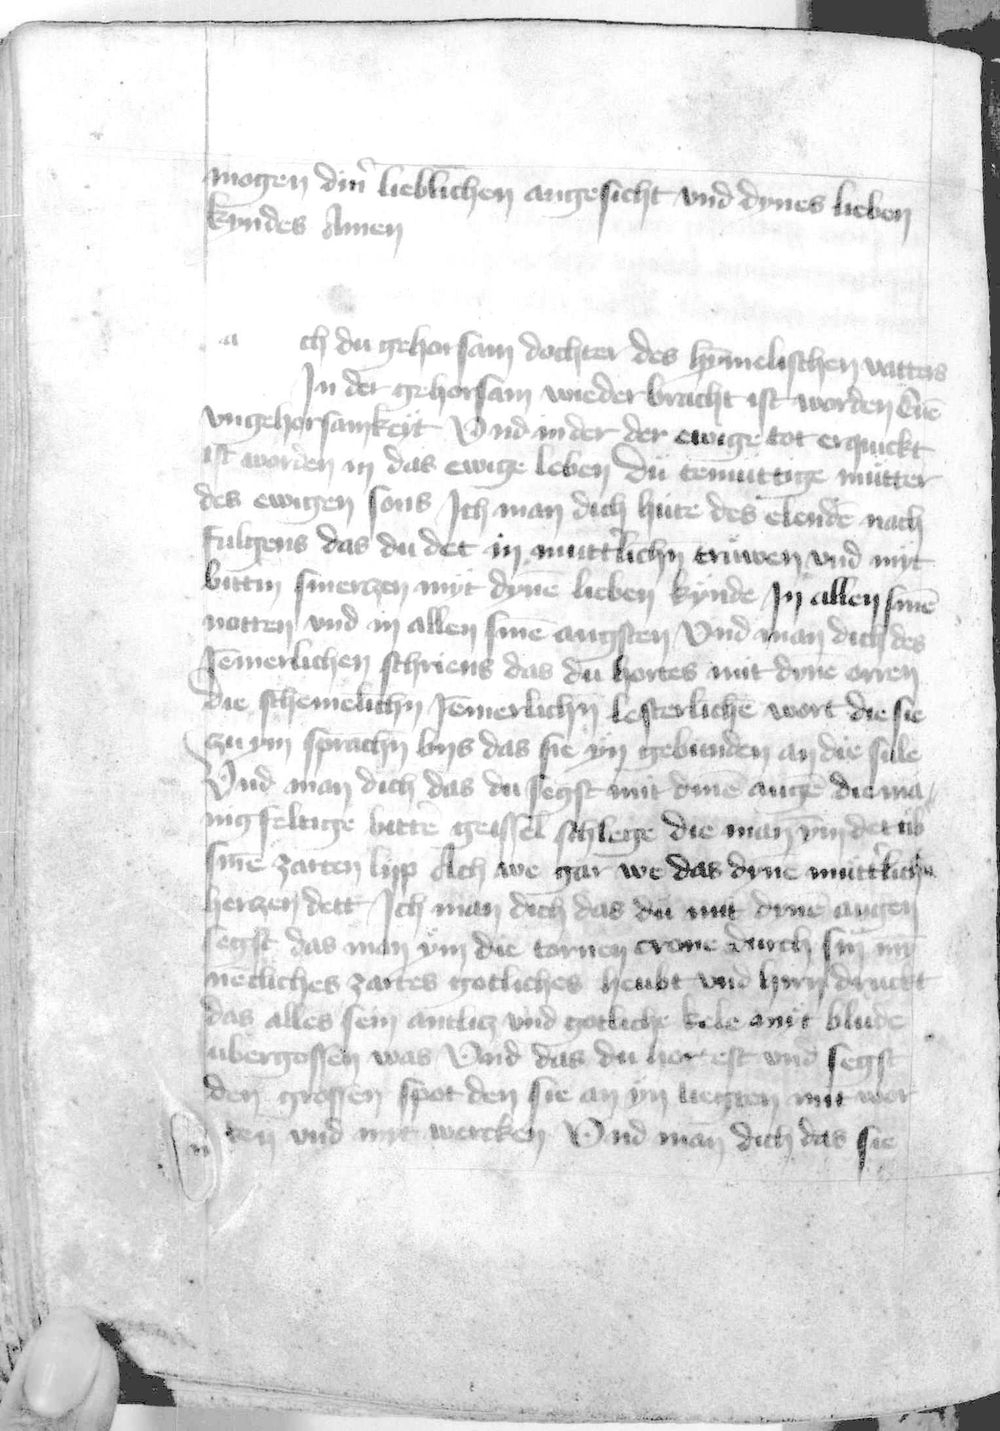 mogen din̄ lieblichen angesicht vnd dynes lieben
kyndes Amen
a ch du gehorsam dochter des hȳmelischen vatters
In der gehorsam wieder bracht ist worden Eue
vngehorsamkeyt Vnd in der der ewige tot erquickt
ist worden in das ewige leben Dü temüttige mütter
des ewigen sons Ich man dich hüte des elende nach
fulgens das du det in mütt'lichn trüwen vnd myt
bittin smerzen myt dynē lieben kynde In allen sinē
notten vnd in allen sinē angsten Vnd man dich des
Jēmerlichen schriens das du hortes mit dyne orren
die schemelichn Jēmerlichn lesterlichē wort die sie
zu ym sprachn bys das sie yn gebunden an die sule
Vnd man dich das du segst mit dinē augē die ma
nigfeltige bittē geissel schlege die man ym det ub
sinē zarten lyp Ach we gar we das dynē mütt'lichn
herzen dett Ich man dich das dü mit dyne augen
segst das man ym die tornen crone durch sin mȳ
necliches zartes gotliches heubt vnd hyrn druckt
das alles sein antlicz vnd gotliche kele myt blude
übergossen was Vnd das du horest vnd segst
den grossen spot den sie an yn liegten mit wor
ten vnd myt wercken Vnd man dich das sie